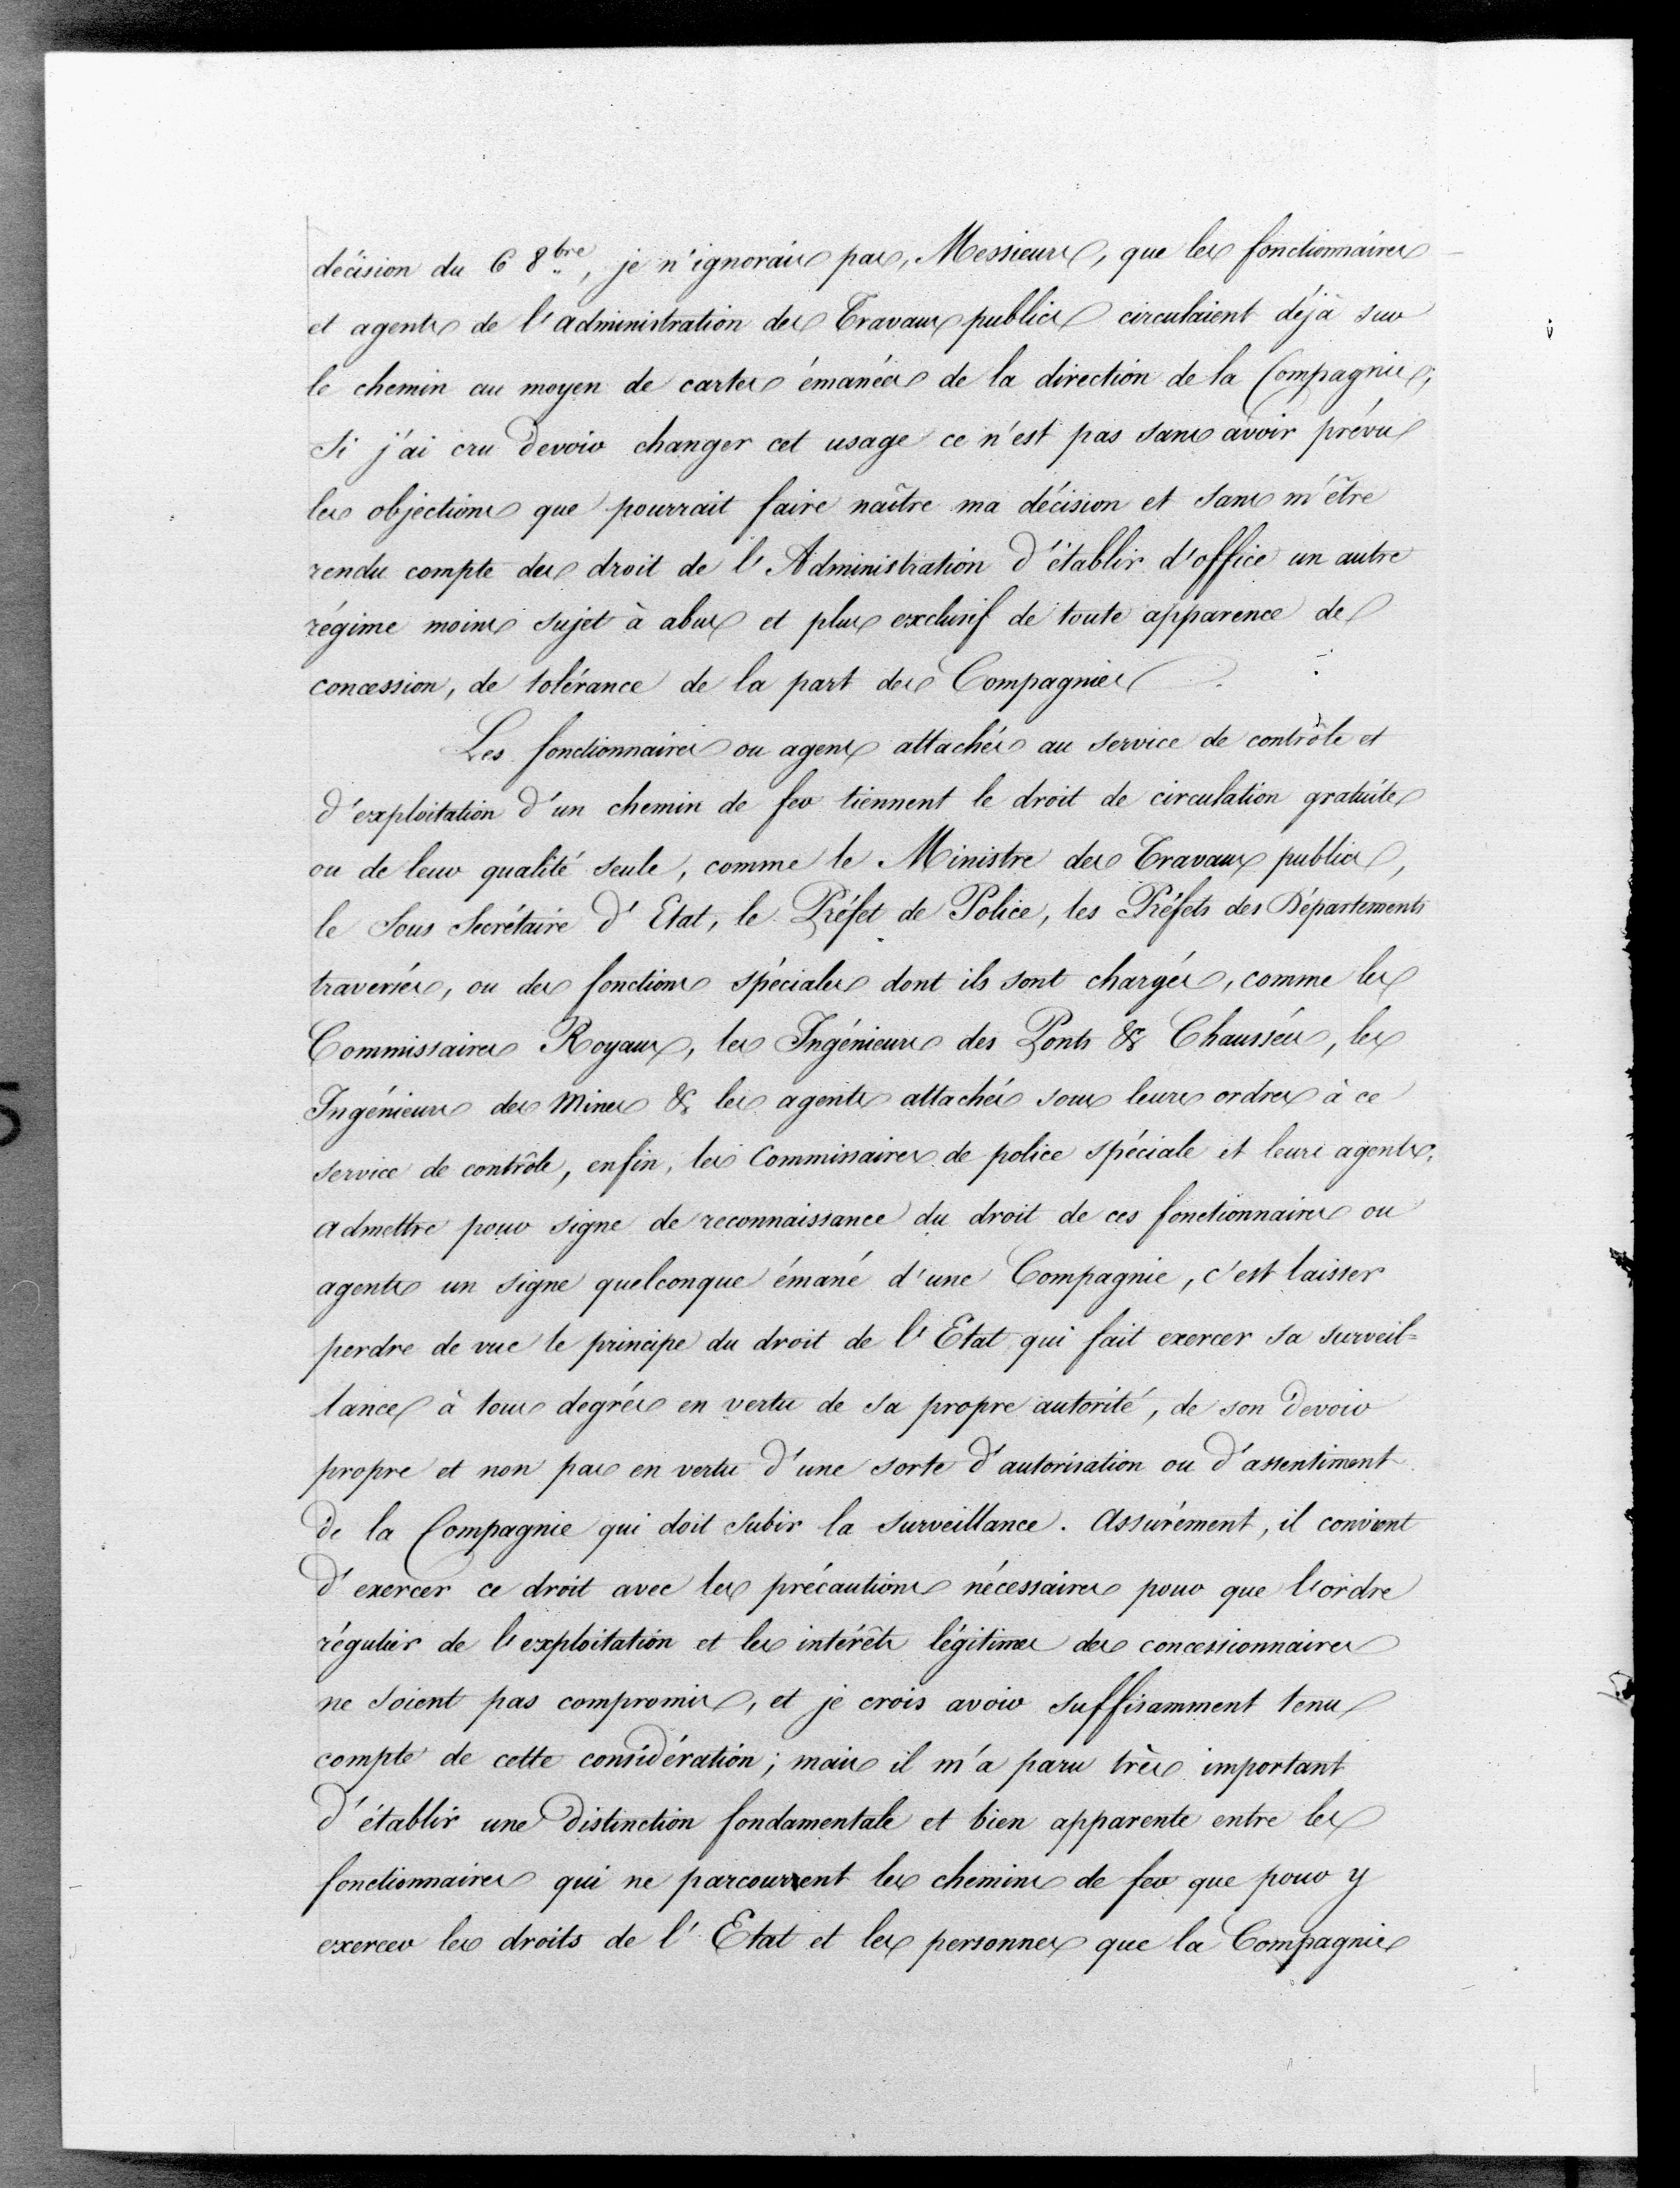 décision du 6 8bre, je n'ignorais pas, Messieurs, que les fonctionnaires
et agents de l'administration des Travaux publics circulaient déjà sur
le chemin au moyen de cartes émanées de la direction de la Compagnie;
Si j'ai cru devoir changer cet usage ce n'est pas sans avoir prévu
les objections que pourrait faire naître ma décision et sans m'être
rendu compte des droit de l'Administration d'établir d'office un autre
régime moins sujet à abus et plus exclusif de toute apparence de
concession, de tolérance de la part des Compagnies.
Les fonctionnaires ou agens attachés au service de contrôle et
d'exploitation d'un chemin de fer tiennent le droit de circulation gratuite
ou de leur qualité seule, comme le Ministre des Travaux publics,
le Sous Secrétaire d'Etat, le Préfet de Police, les Préfets des Départements
traversés, ou des fonctions spéciales dont ils sont chargés, comme les
Commissaires Royaux, les Ingénieurs des Ponts & Chaussées, les
Ingénieurs des Mines & les agents attachés sous leurs ordres à ce
service de contrôle, enfin, les Commissaires de police spéciale et leurs agents.
admettre pour signe de reconnaissance du droit de ces fonctionnaires ou
agents un signe quelconque émané d'une Compagnie, c'est laisser
perdre de vue le principe du droit de l'Etat qui fait exercer sa surveil=
lance à tous degrés en vertu de sa propre autorité, de son devoir
propre et non pas en vertu d'une sorte d'autorisation ou d'assentiment
de la Compagnie qui doit subir la surveillance. Assurément, il convient
d'exercer ce droit avec les précautions nécessaires pour que l'ordre
régulier de l'exploitation et les intérêts légitimes des concessionnaires
ne soient pas compromis, et je crois avoir suffisamment tenu
compte de cette considération; mais il m'a paru très important
d'établir une distinction fondamentale et bien apparente entre les
fonctionnaires qui ne parcourent les chemins de fer que pour y
exercer les droits de l'Etat et les personnes que la Compagnie